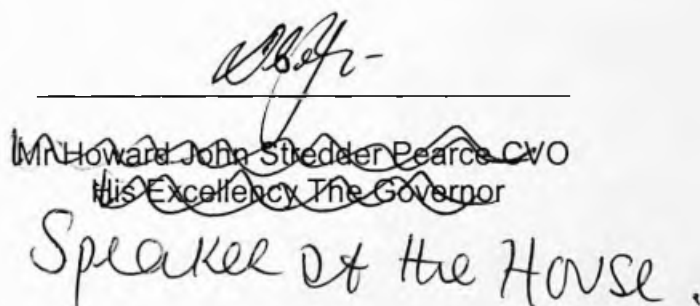 Mr Howard John Stredder Pearce CVO
His Excellency The Governor
Speaker of the House.